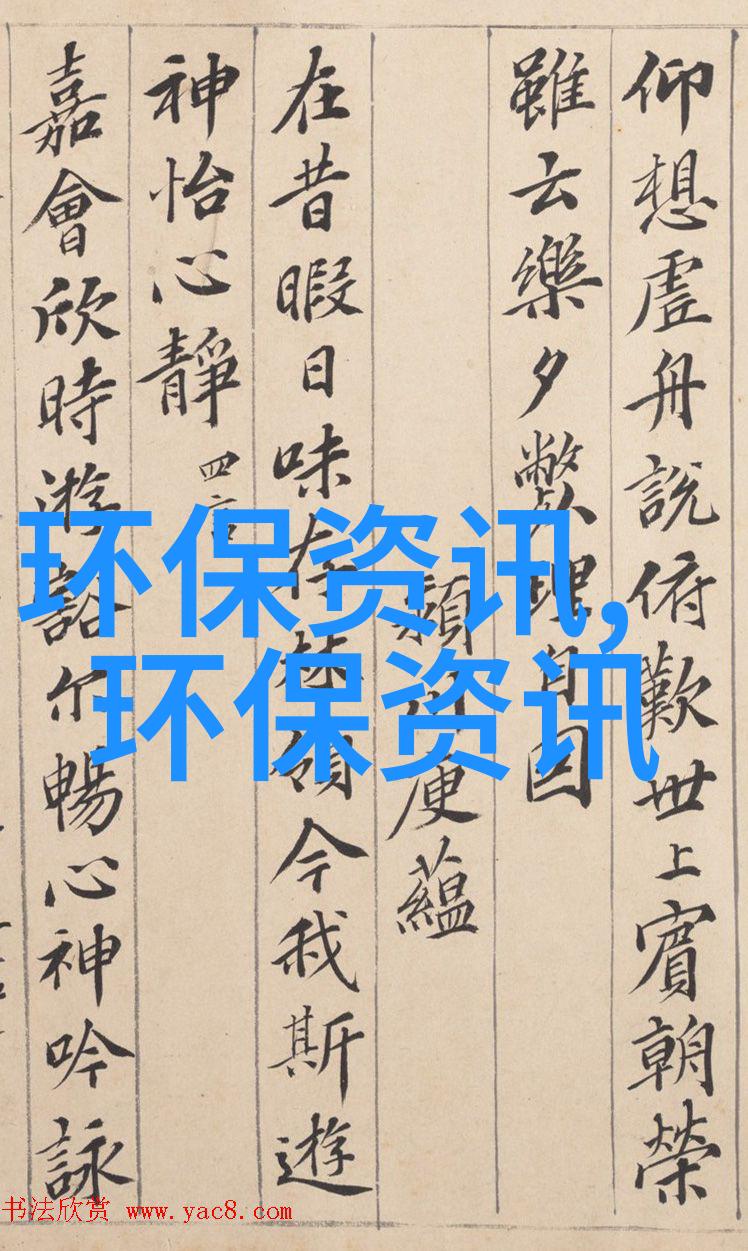 仰想虛舟說俯歎世上賓朝榮
雖云樂夕弊理自因
潁川庾蘊
在昔暇日味存林領今我斯遊
神怡心靜 四言
嘉會欣時游豁尓暢心神吟詠
环保资讯,
环保资讯
书法欣赏 www.yac8.com